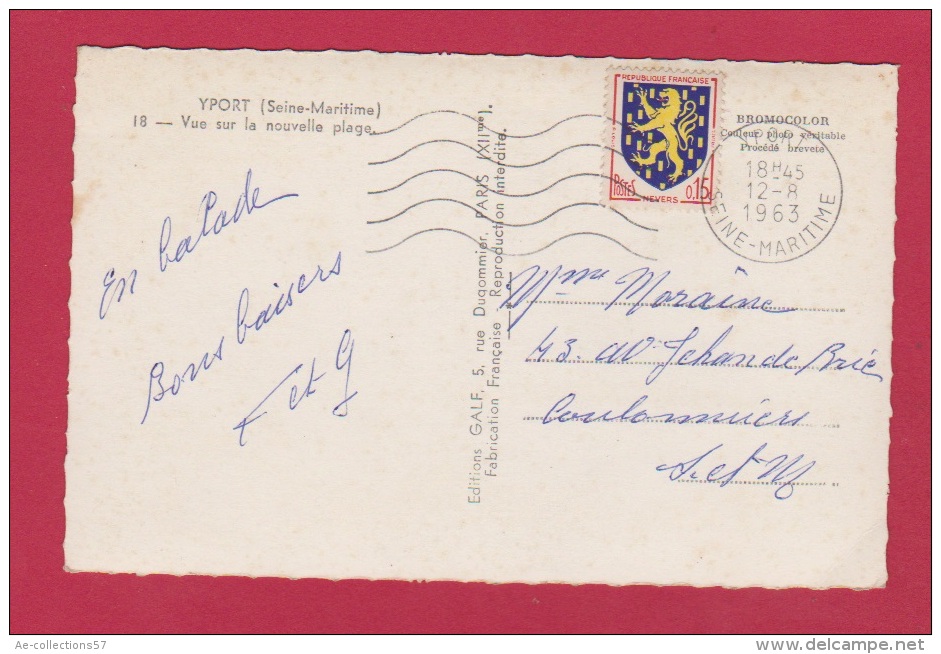 YPORT (Seine-Maritime)
18 — Vue sur la nouvelle plage.
En balade
Bons baisers
F et G
Editions GALF, 5, rue Dugommier, PARIS (XIIme).
Fabrication Française - Reproduction interdite.
REPUBLIQUE FRANÇAISE
POSTES
NEVERS
0,15
BROMOCOLOR
Couleur photo véritable
Procédé breveté
YPORT
18H45
12-8
1963
SEINE-MARITIME
Mme Moraine
43. av Jehan de Brie
Coulommiers
S. et M
Ae-collections57
www.delcampe.net